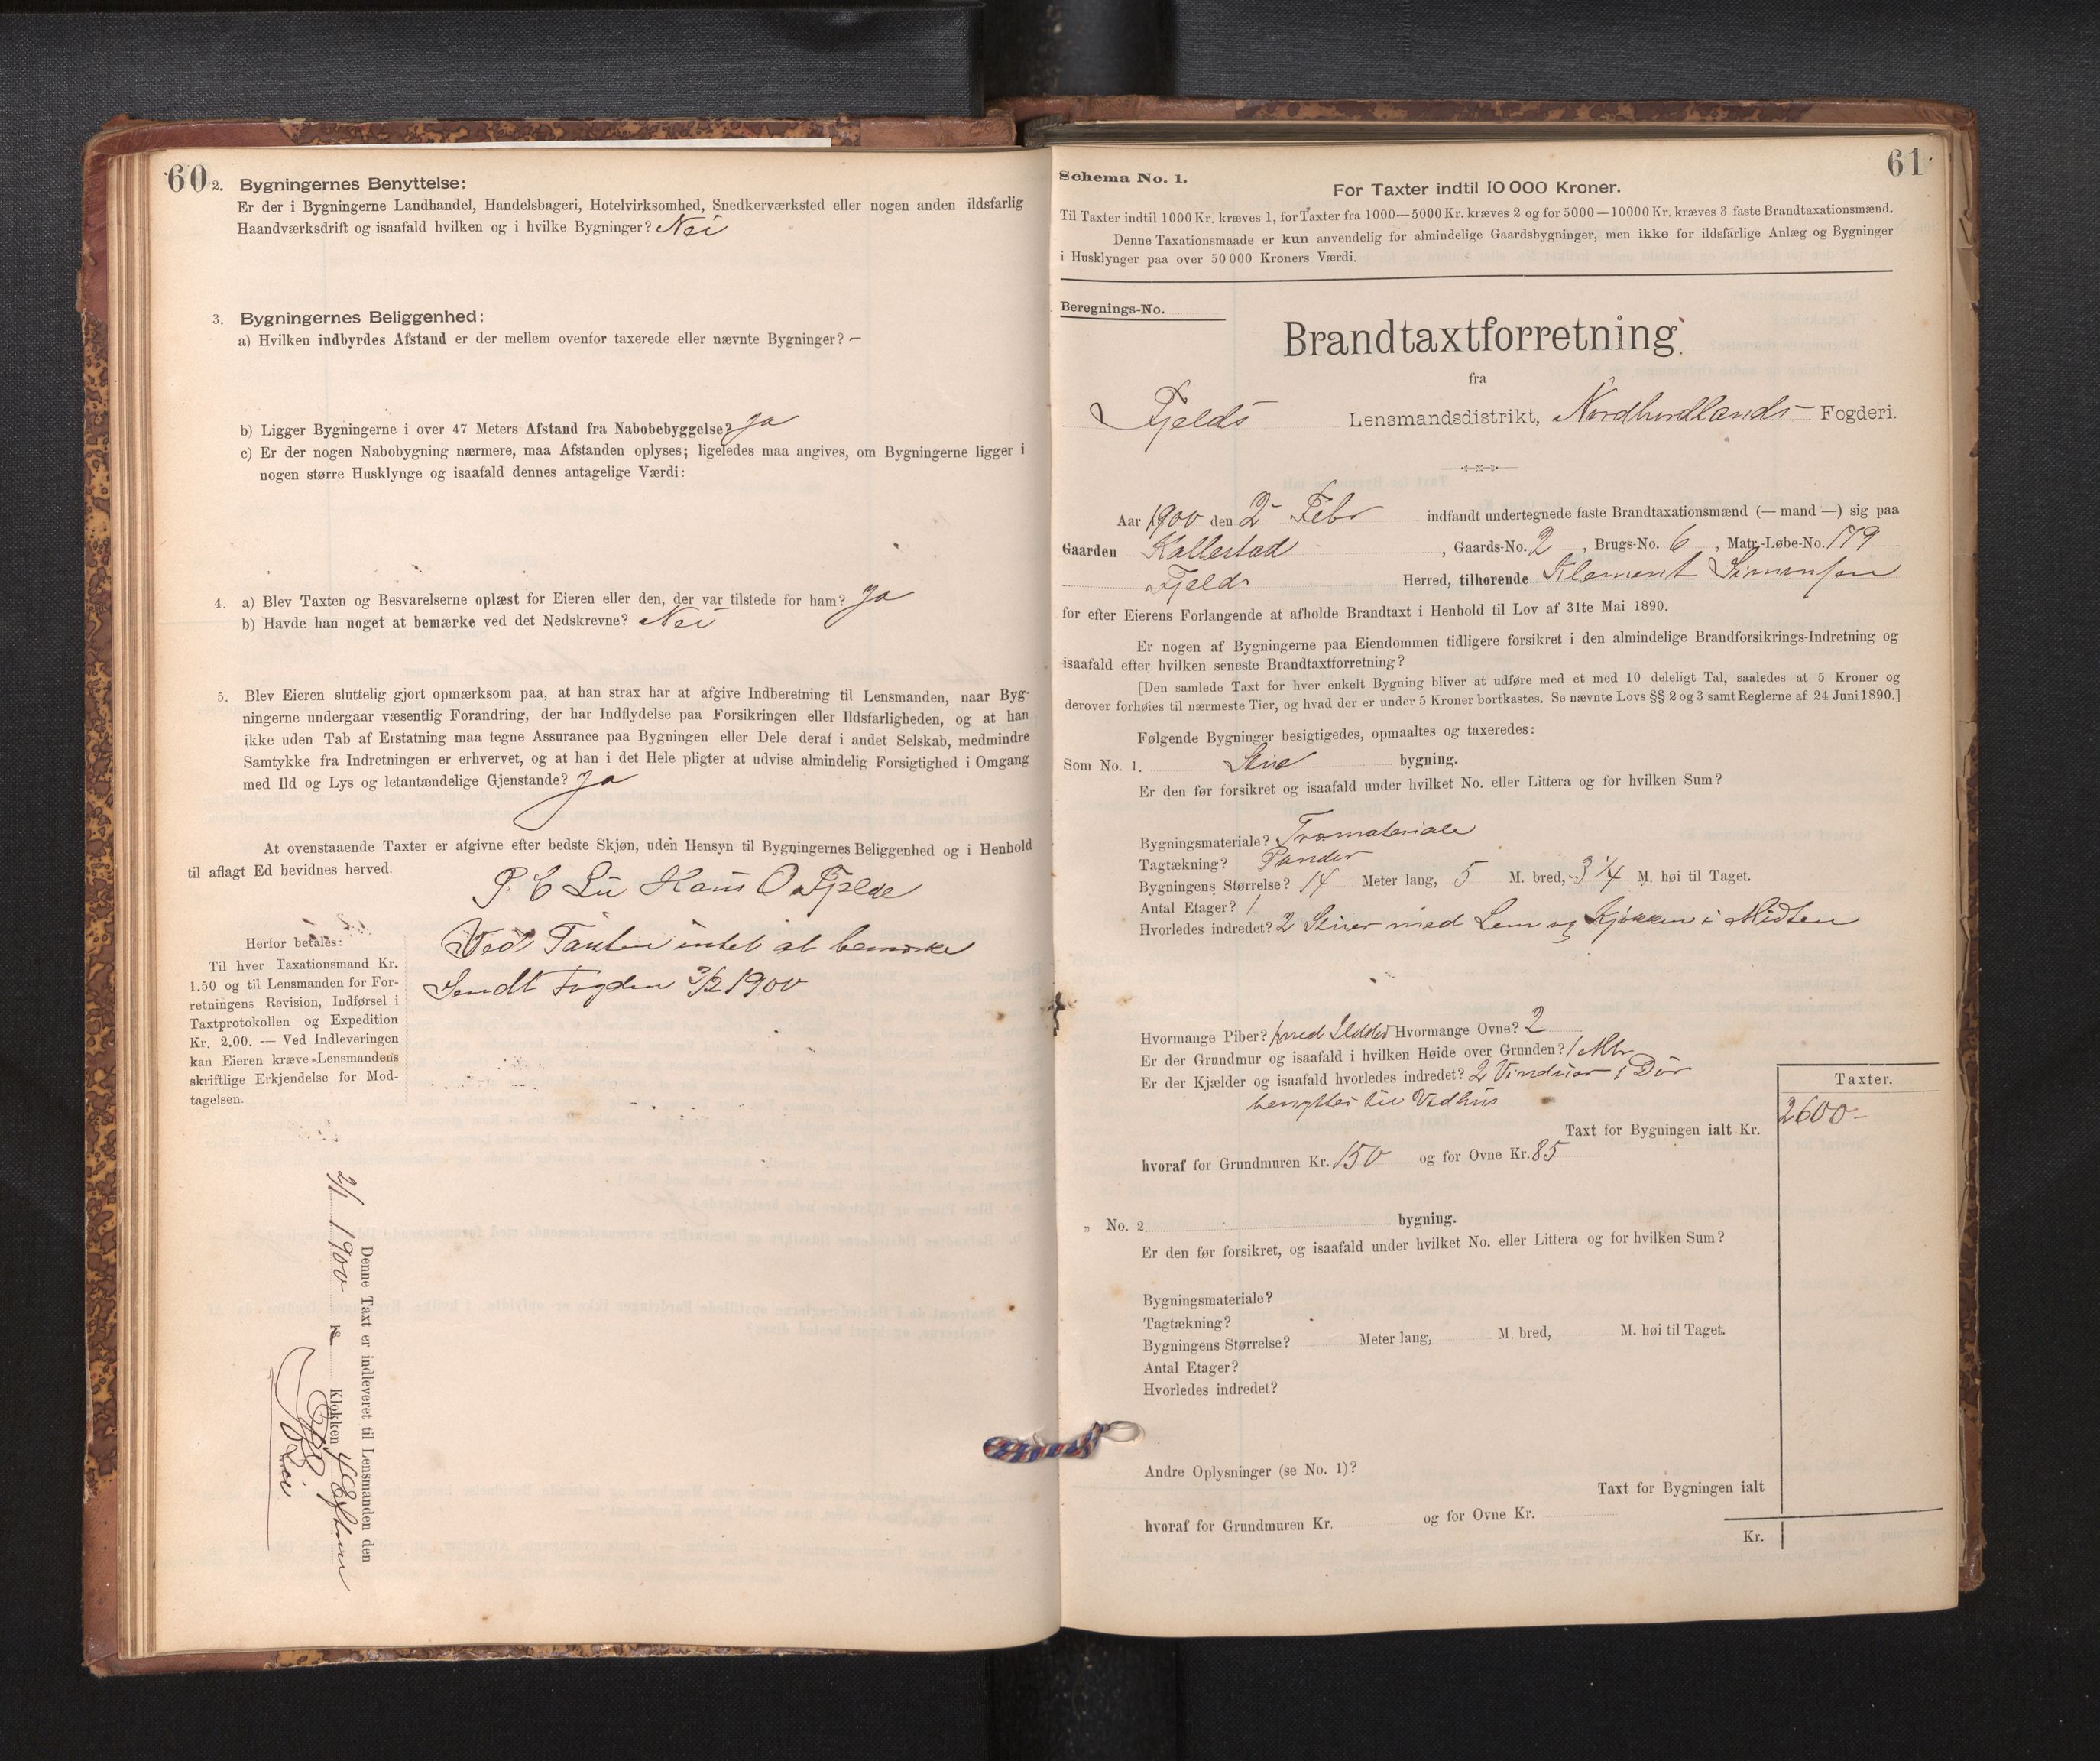 60
2. Bygningernes Benyttelse:
Er der i Bygningerne Landhandel, Handelsbageri, Hotelvirksomhed, Snedkerværksted eller nogen anden ildsfarlig
Haandværksdrift og isaafald hvilken og i hvilke Bygninger? Nei
3. Bygningernes Beliggenhed:
a) Hvilken indbyrdes Afstand er der mellem ovenfor taxerede eller nævnte Bygninger? —
b) Ligger Bygningerne i over 47 Meters Afstand fra Nabobebyggelse? Ja
c) Er der nogen Nabobygning nærmere, maa Afstanden oplyses; ligeledes maa angives, om Bygningerne ligger i
nogen større Husklynge og isaafald dennes antagelige Værdi:
4. a) Blev Taxten og Besvarelserne oplæst for Eieren eller den, der var tilstede for ham? Ja
b) Havde han noget at bemærke ved det Nedskrevne? Nei
5. Blev Eieren sluttelig gjort opmærksom paa, at han strax har at afgive Indberetning til Lensmanden, naar Byg-
ningerne undergaar væsentlig Forandring, der har Indflydelse paa Forsikringen eller Ildsfarligheden, og at han
ikke uden Tab af Erstatning maa tegne Assurance paa Bygningen eller Dele deraf i andet Selskab, medmindre
Samtykke fra Indretningen er erhvervet, og at han i det Hele pligter at udvise almindelig Forsigtighed i Omgang
med Ild og Lys og letantændelige Gjenstande? Ja
At ovenstaaende Taxter er afgivne efter bedste Skjøn, uden Hensyn til Bygningernes Beliggenhed og i Henhold
til aflagt Ed bevidnes herved.
P. C Lie Hans O. Fjelde
Ved Taxten intet at bemærke
Sendt Fogden 3/2 1900
Herfor betales:
Til hver Taxationsmand Kr.
1.50 og til Lensmanden for For-
retningens Revision, Indførsel i
Taxtprotokollen og Expedition
Kr. 2.00. — Ved Indleveringen
kan Eieren kræve Lensmandens
skriftlige Erkjendelse for Mod-
tagelsen.
Denne Taxt er indleveret til Lensmanden den
2/ 1900 Klokken 4 Efterm
Lie
61
Schema No. 1.
For Taxter indtil 10 000 Kroner.
Til Taxter indtil 1000 Kr. kræves 1, for Taxter fra 1000—5000 Kr. kræves 2 og for 5000—10000 Kr. kræves 3 faste Brandtaxationsmænd.
Denne Taxationsmaade er kun anvendelig for almindelige Gaardsbygninger, men ikke for ildsfarlige Anlæg og Bygninger
i Husklynger paa over 50 000 Kroners Værdi.
Beregnings-No.
Brandtaxtforretning
fra
Fjelds Lensmandsdistrikt, Nordhordlands Fogderi.
Aar 1900 den 2 Febr indfandt undertegnede faste Brandtaxationsmænd (— mand —) sig paa
Gaarden Kallestad, Gaards-No. 2, Brugs-No. 6, Matr.-Løbe-No. 179
Fjeld Herred, tilhørende Klement Simensen
for efter Eierens Forlangende at afholde Brandtaxt i Henhold til Lov af 31te Mai 1890.
Er nogen af Bygningerne paa Eiendommen tidligere forsikret i den almindelige Brandforsikrings-Indretning og
isaafald efter hvilken seneste Brandtaxtforretning?
[Den samlede Taxt for hver enkelt Bygning bliver at udføre med et med 10 deleligt Tal, saaledes at 5 Kroner og
derover forhøies til nærmeste Tier, og hvad der er under 5 Kroner bortkastes. Se nævnte Lovs §§ 2 og 3 samt Reglerne af 24 Juni 1890.]
Følgende Bygninger besigtigedes, opmaaltes og taxeredes:
Som No. 1. Stue bygning.
Er den før forsikret og isaafald under hvilket No. eller Littera og for hvilken Sum?
Bygningsmateriale? Træmateriale
Tagtækning? Pander
Bygningens Størrelse? 14 Meter lang, 5 M. bred, 3 1/4 M. høi til Taget.
Antal Etager? 1
Hvorledes indredet? 2 Stuer med Lem og Kjøkken i Midten
Hvormange Piber? 1 med Ildsted Hvormange Ovne? 2
Er der Grundmur og isaafald i hvilken Høide over Grunden? 1 Mtr
Er der Kjælder og isaafald hvorledes indredet? 2 Vinduer 1 Dør
benyttes til Vedhus
Taxter.
Taxt for Bygningen ialt Kr. 2600-
hvoraf for Grundmuren Kr. 150 og for Ovne Kr. 85
„ No. 2. bygning.
Er den før forsikret, og isaafald under hvilket No. eller Littera og for hvilken Sum?
Bygningsmateriale?
Tagtækning?
Bygningens Størrelse? Meter lang, M. bred, M. høi til Taget.
Antal Etager?
Hvorledes indredet?
Andre Oplysninger (se No. 1)?
Taxt for Bygningen ialt
hvoraf for Grundmuren Kr. og for Ovne Kr.
Kr.